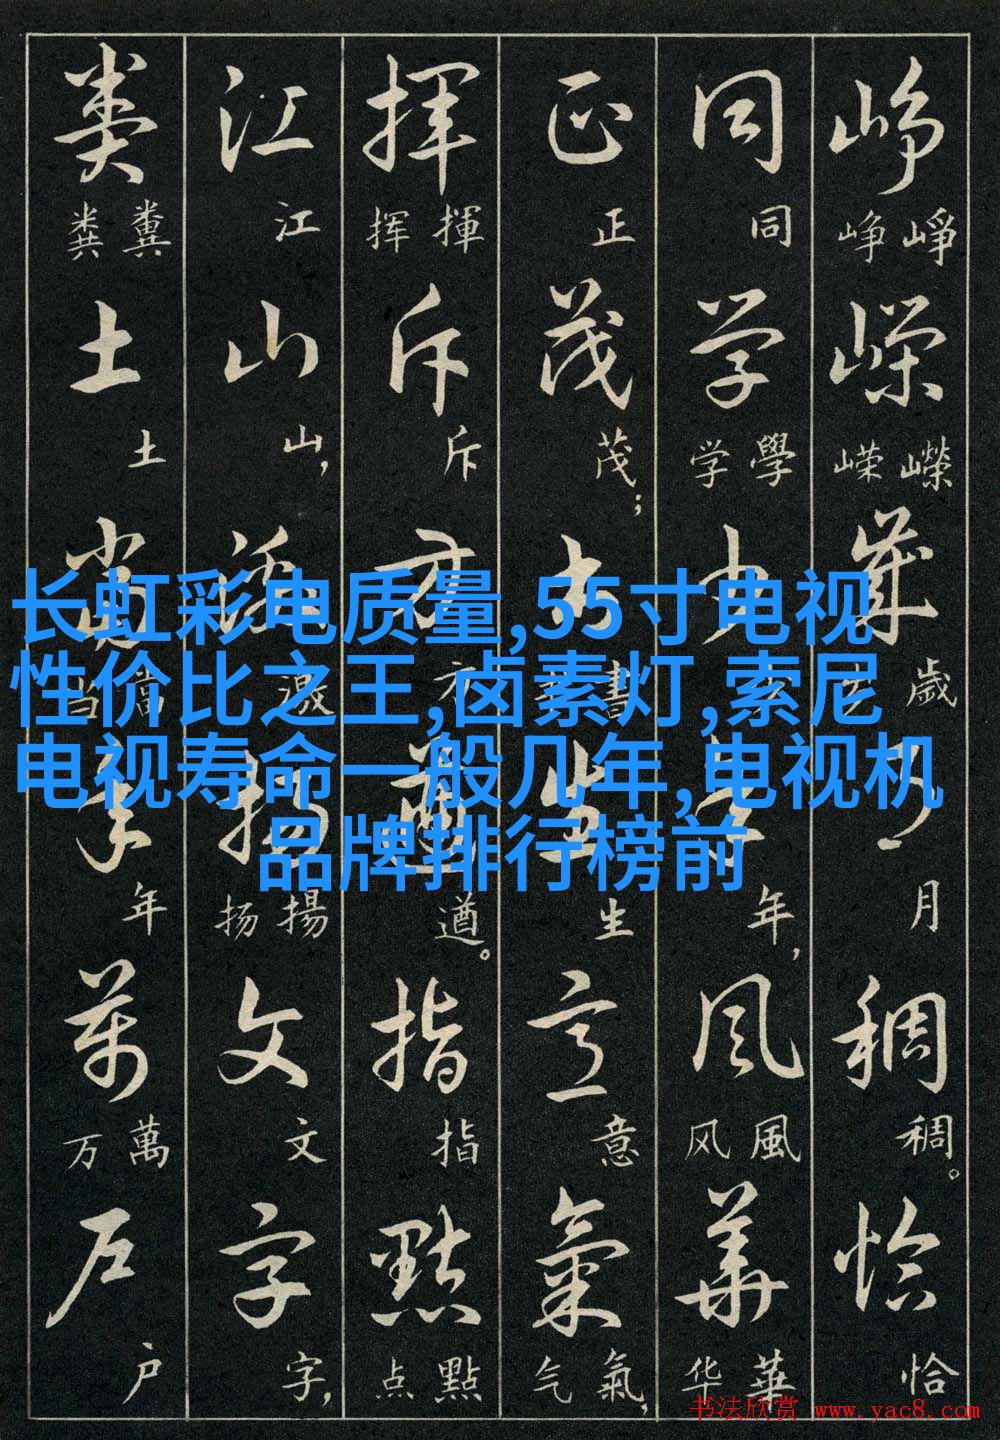 长虹彩电质量,55寸电视
性价比之王,卤素灯,索尼
电视寿命一般几年,电视机
品牌排行榜前
峥嵘岁月稠恰
崢峥 嶸嵘 歲 月 稠。 恰
同学少年风华
同 學学 年, 風风 華华
正茂书生意氣
正 茂; 書 生 意 氣气,
挥斥方遒指點
揮挥 斥 方 遒。 指 點点
江山激扬文字
江 山, 激 揚扬 文 字,
粪土当年万户
糞粪 土 當当 年 萬万 户
书法欣赏 www.yac8.com